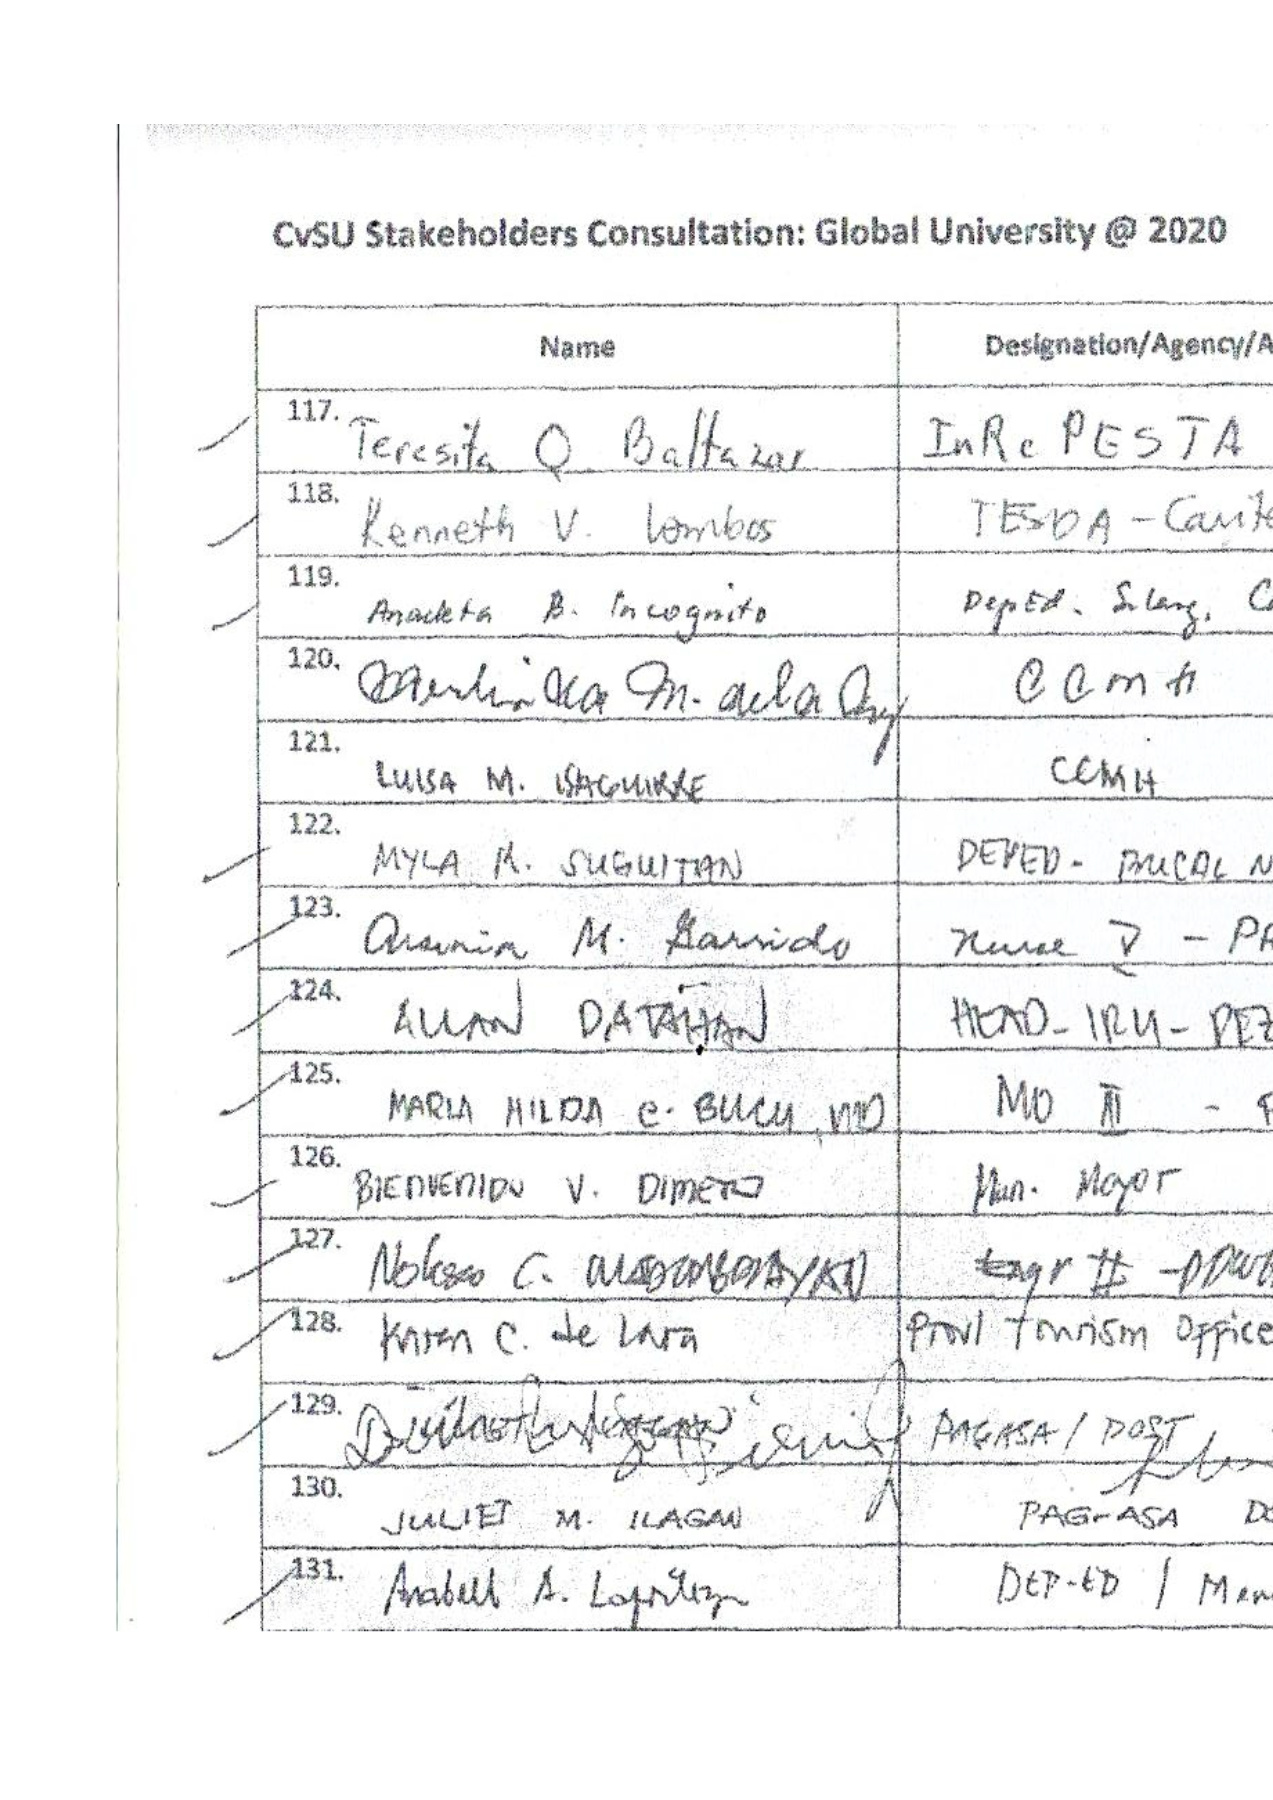 CvSU Stakeholders Consultation: Global University @ 2020
Name Designation/Agency/A
117. Teresita Q. Baltazar InRe PESTA
118. Kenneth V. Lombos TESDA - Cavite
119. Anacleta B. Incognito DepEd. Silang, Ca
120. M. dela Cruz CCMH
121. LUISA M. ISAGUIRRE CCMH
122. MYLA R. SUGUITAN DEPED - BUCAL N
123. M. Garrido Nurse V - PH
124. ALLAN DATAHAN HEAD - IRU - PEZ
125. MARIA HILDA C. BUCU, MD MO III -
126. BIENVENIDO V. DIMERO Mun. Mayor
127. C. Engr II -
128. Karen C. de Lara Provl Tourism Office
129. PAGASA / DOST
130. JULIET M. ILAGAN PAG-ASA DO
131. Anabell A. DEP-ED / Men